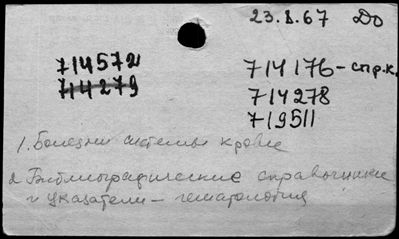 23.X.67 До
714572
714279
714176 - спр.к.
714278
719511
1. Болезни системы крови
2 Библиографические справочники
и указатели - гематология